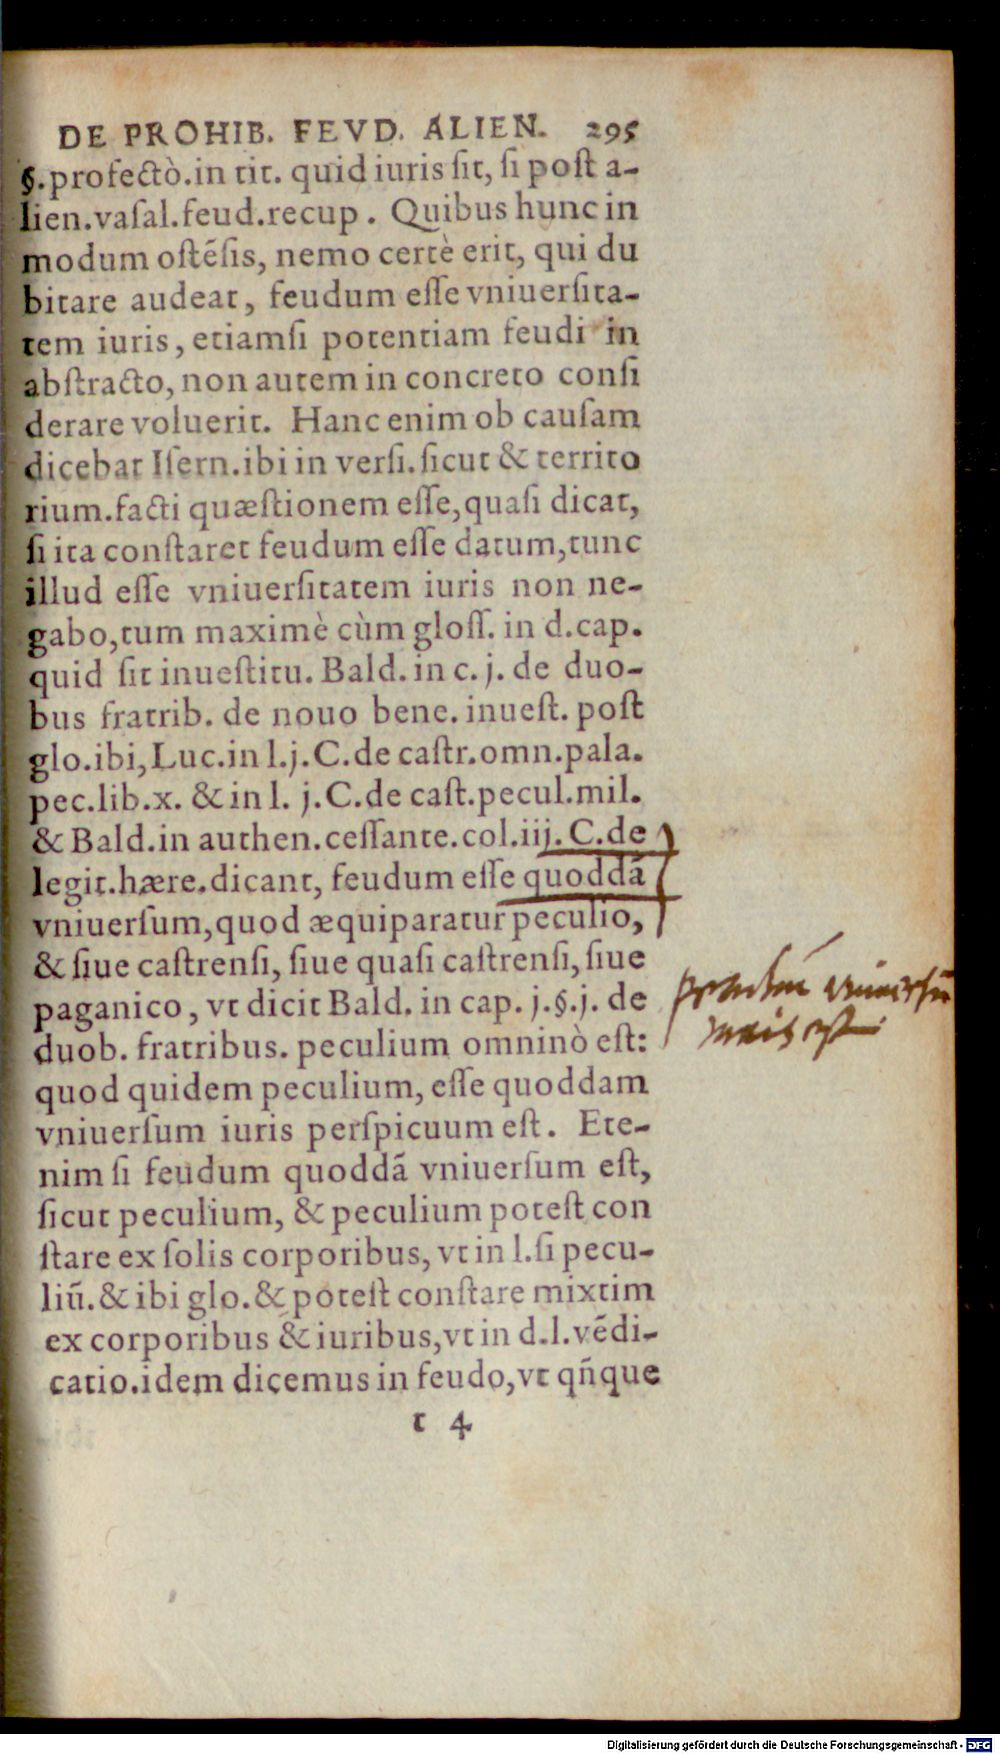 DE PROHIB. FEVD. ALIEN. 295
§.profectò.in tit. quid iuris ſit, ſi poſt a-
lien.vaſal.feud.recup. Quibus hunc in
modum oſtẽſis, nemo certè erit, qui du
bitare audeat, feudum eſſe vniuerſita-
tem iuris, etiamſi potentiam feudi in
abſtracto, non autem in concreto conſi
derare voluerit. Hanc enim ob cauſam
dicebat Iſern.ibi in verſi.ſicut & territo
rium.facti quæſtionem eſſe,quaſi dicat,
ſi ita conſtaret feudum eſſe datum,tunc
illud eſſe vniuerſitatem iuris non ne-
gabo,tum maximè cùm gloſſ. in d.cap.
quid ſit inueſtitu. Bald. in c. j. de duo-
bus fratrib. de nouo bene. inueſt. poſt
glo.ibi,Luc.in l.j.C.de caſtr.omn.pala.
pec.lib.x. & in l. j.C.de caſt.pecul.mil.
& Bald.in authen.ceſſante.col.iij. C.de
legit.hære.dicant, feudum eſſe quoddã
vniuerſum,quod æquiparatur peculio,
& ſiue caſtrenſi, ſiue quaſi caſtrenſi, ſiue
paganico, vt dicit Bald. in cap. j.§.j. de
duob. fratribus. peculium omninò eſt:
quod quidem peculium, eſſe quoddam
vniuerſum iuris perſpicuum eſt. Ete-
nim ſi feudum quoddã vniuerſum eſt,
ſicut peculium, & peculium poteſt con
ſtare ex ſolis corporibus, vt in l.ſi pecu-
liũ.& ibi glo.& poteſt conſtare mixtim
ex corporibus & iuribus,vt in d.l.vẽdi-
catio.idem dicemus in feudo,vt qñque
t 4
vniuersũ
iuris est
Digitalisierung gefördert durch die Deutsche Forschungsgemeinschaft - DFG